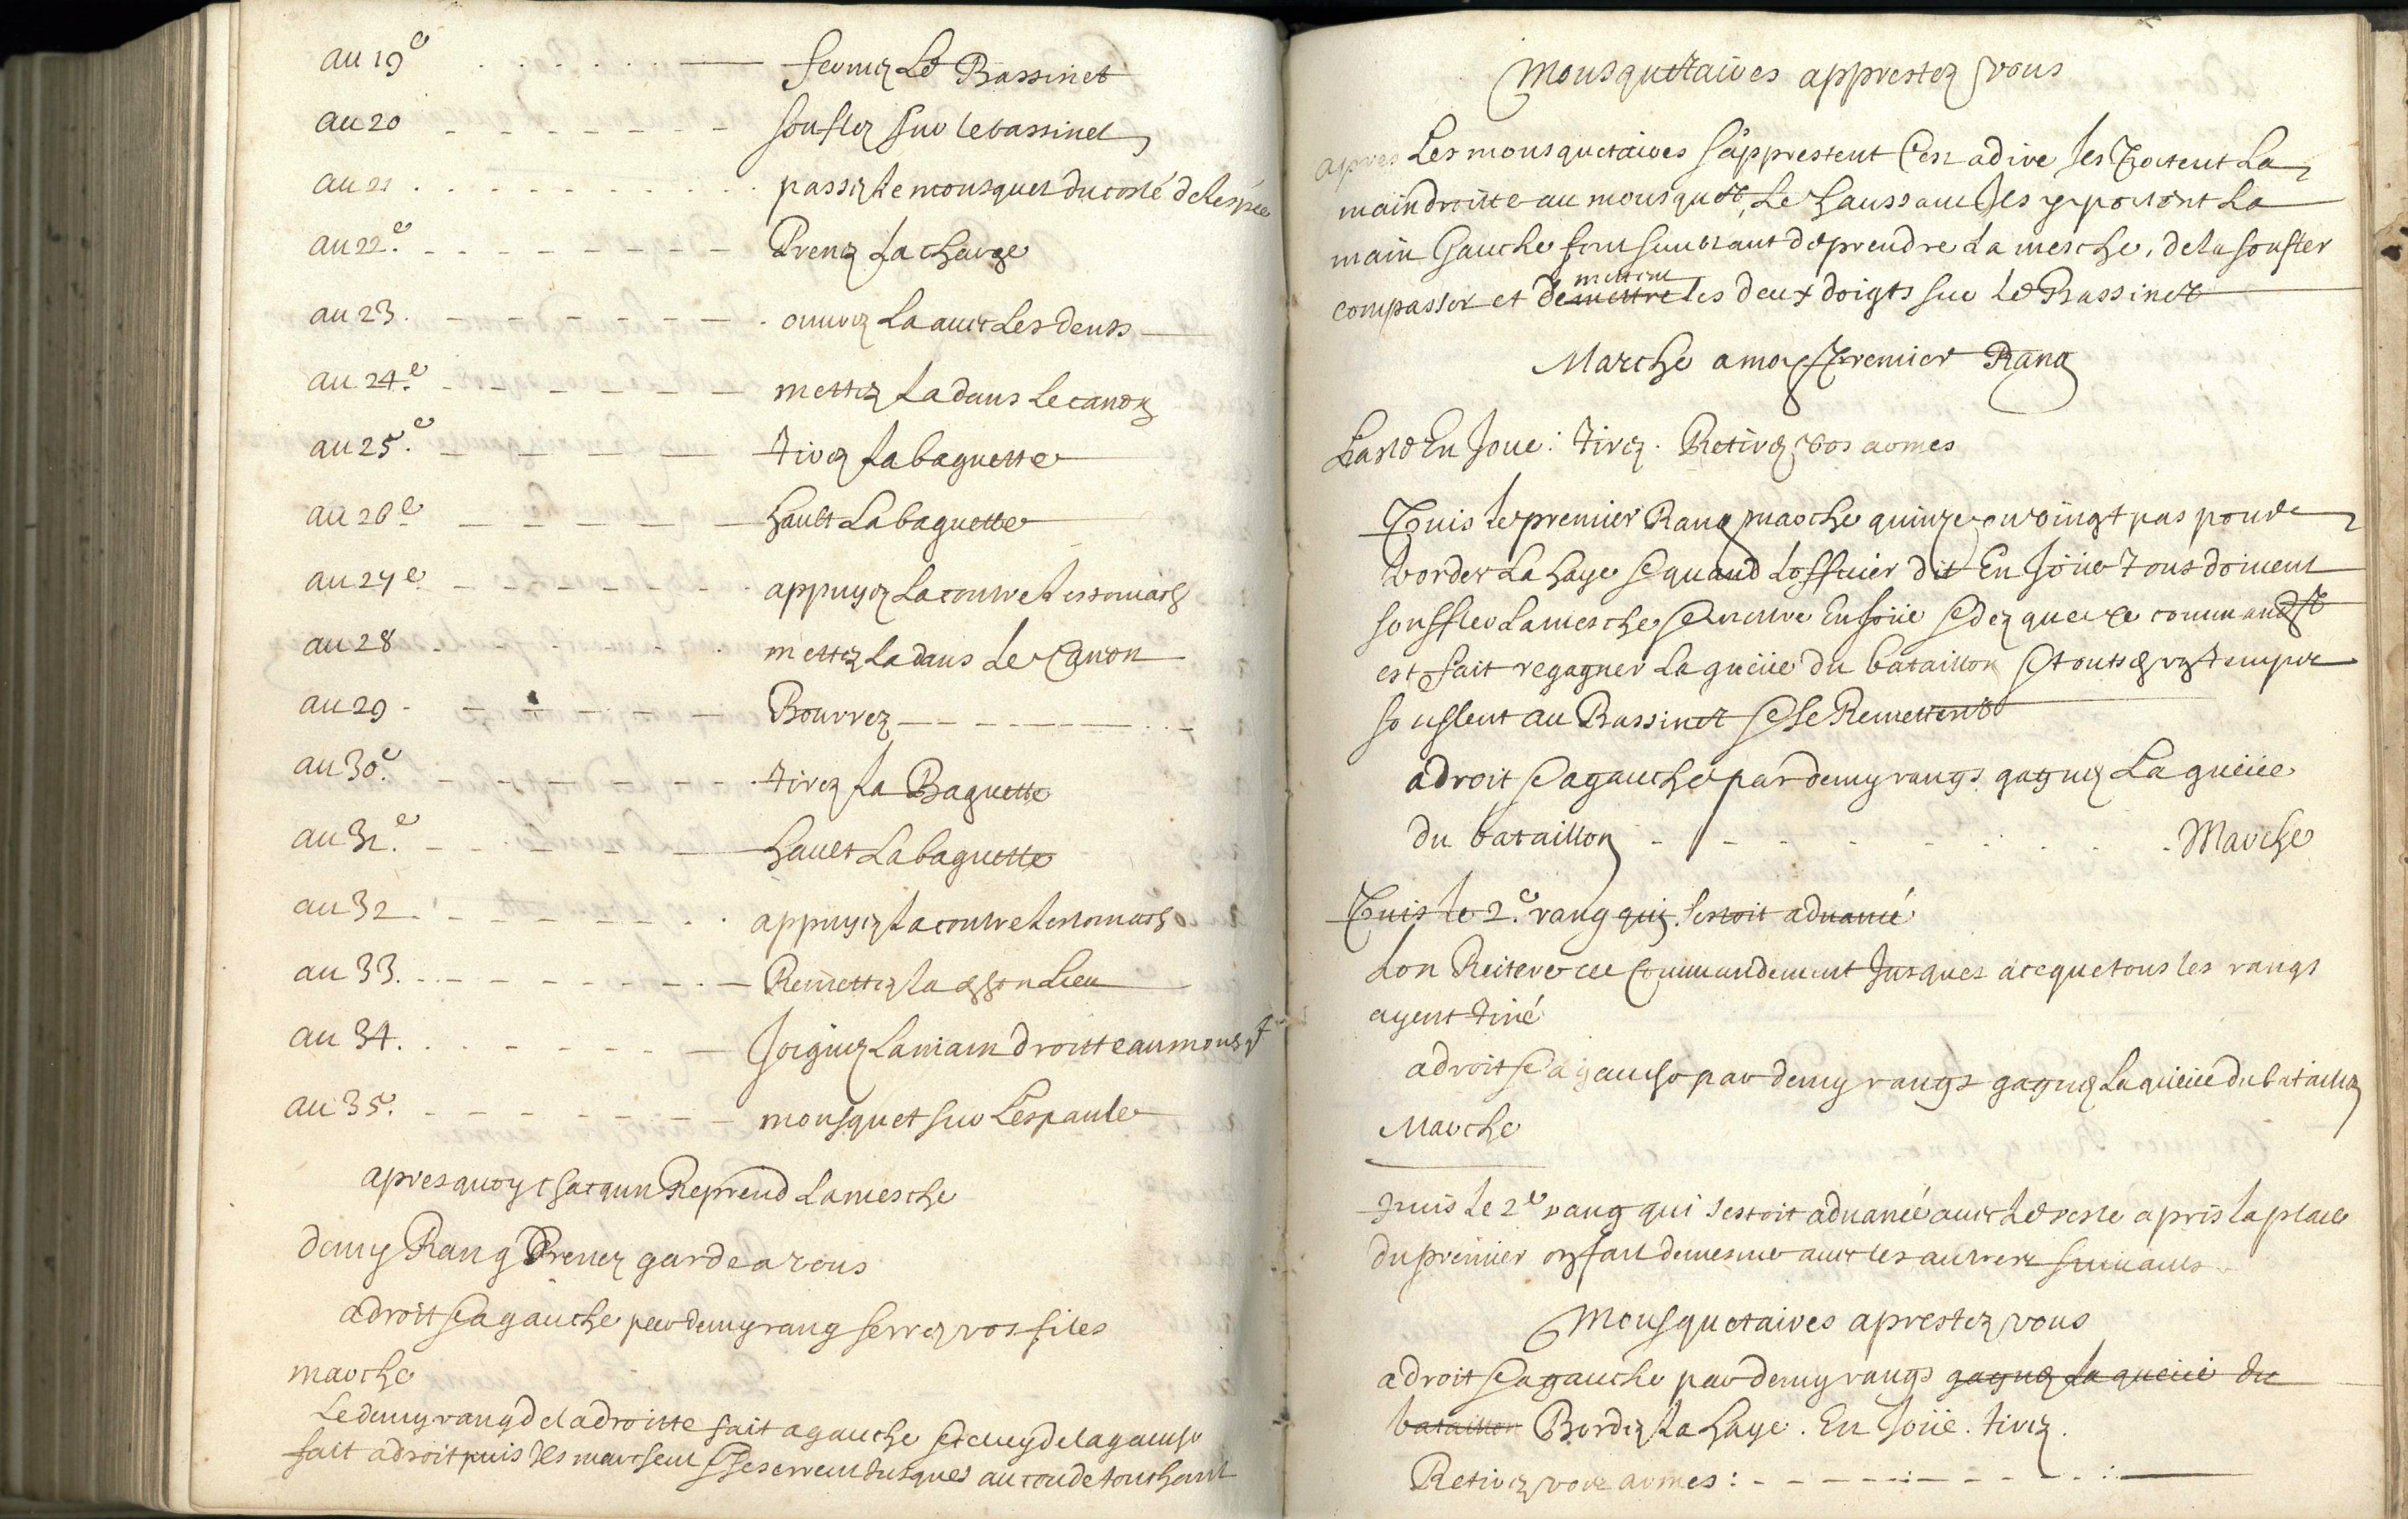 au 19e . . . . . . fermez Le Bassinet
au 20 - - - - - - - souflez sur le bassinet
au 21 . . . . . . . . . . passez le mousquet du costé de lespée
au 22e. - - - - - - - - Prenez La charge
au 23. - - - - - - - . ouurez La auec Les dents
au 24e. - - - - - - mettez La dans Le canon
au 25e. - - - - tirez La baguette
au 26e - - - - - hault La baguette
au 27e - - - - - - . appuyez La contre Lestomach
au 28 - - - - - - . mettez La dans Le Canon
au 29 - - - - - - Bourrez - - - - - - - - -
au 30e. - - - - - - - tirez La Baguette
au 31e. - - - - - hault La baguette
au 32. - - - - - - . . appuyez La contre Lestomach
au 33. . - - - - - - . - Remettez La en son Lieu
au 34. . . - - - - - Joignez La main droitte au mousqt
au 35. - - - - - - - - mousquet sur Lespaule
apres quoy chacqun Reprend La mesche
demy Rang Prenez garde a vous
a droit & a gauche par demy rang serrez vos files
marche
Le demy rang de la droitte fait a gauche & celuy de la gauche
fait a droit puis Jls marchent & se serrent Jusques au coude touchant
Mousquetaires apprestez vous
apres Les mousquetaires s'apprestent C'est a dire Jls Portent La
main droitte au mousquet, Le haussant Jls y portent La
main Gauche font semblant de prendre La mesche, de la soufler
compasser et de mettre mettent les deux doigts sur Le Bassinet
Marche a moy Premier Rang
La En Joue: tirez. Retirez vos armes
Puis Le premier Rang marche quinze ou vingt pas pour
border La haye & quand Lofficier dit En Joüe tous doiuent
souffler La mesche & mettre En Joüe & dez que ce commandt
est fait regagner La queüe du bataillon & tout en temps
souflent au Bassinet & se Remettent
a droit & a gauche par demy rangs gagnez La queüe
du bataillon - - - - - - . . . . Marche
Puis le 2e. rang qui sestoit aduancé
Lon Reitere ce Commandement Jusques a ce que tous les rangs
ayent tiré
a droit & a gauche par demy rangs gagnez La queüe du bataillon
Marche
Puis Le 2e rang qui sestoit aduancé auec Le reste a pris la place
du premier on fait de mesme auec les autres suiuants
Mousquetaires aprestez vous
a droit & a gauche par demy rangs gagnez La queüe du
bataillon Bordez La haye. En Joüe. tirez.
Retirez vos armes: - - - - - - - - - :